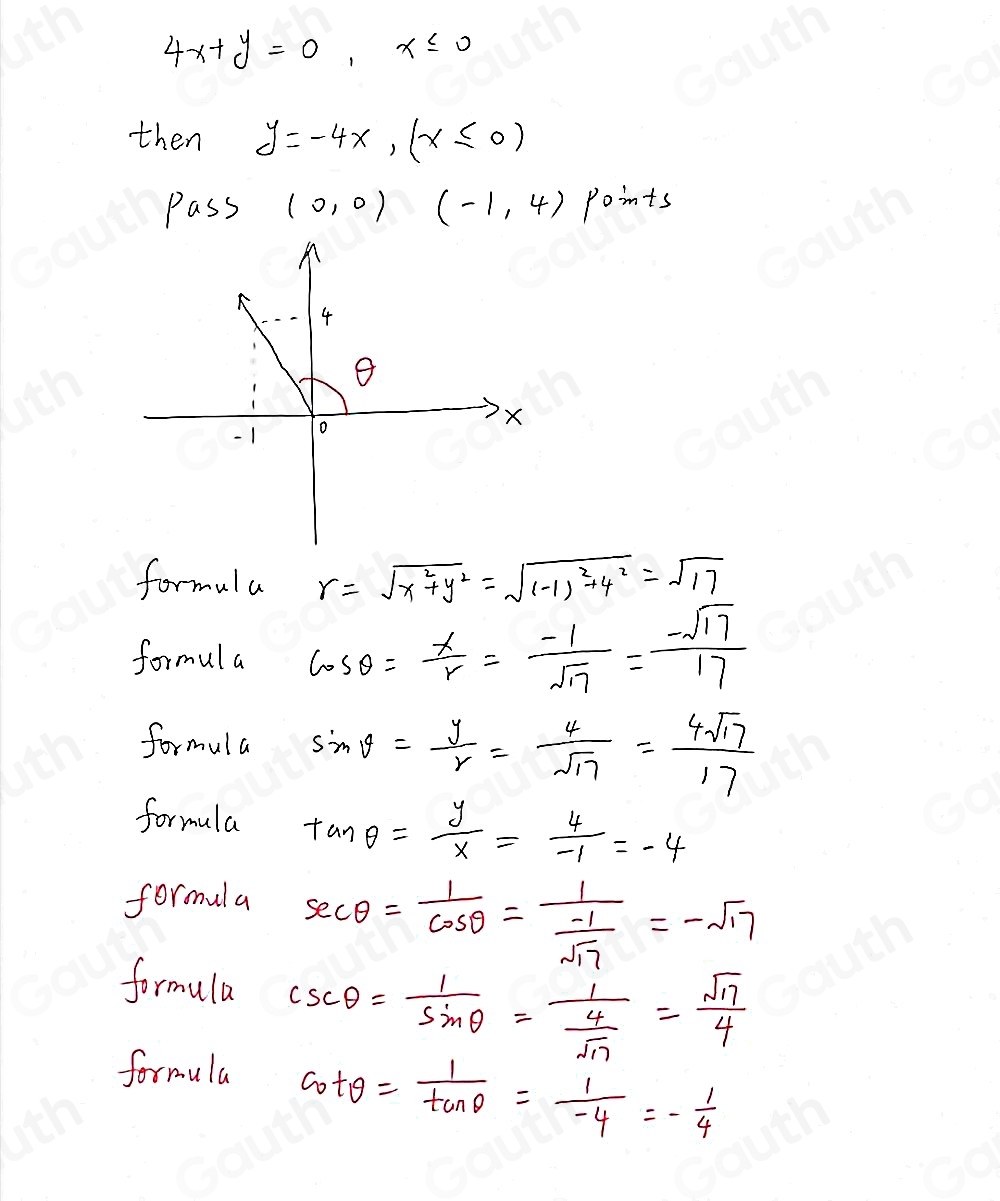 4x+y = 0 , x ≤ 0
then y = -4x , (x ≤ 0)
pass (0,0) (-1, 4) points
4
θ
x
-1
0
formula r = √(x²+y²) = √((-1)²+4²) = √17
formula cosθ = x/r = -1/√17 = -√17/17
formula sinθ = y/r = 4/√17 = 4√17/17
formula tanθ = y/x = 4/-1 = -4
formula secθ = 1/cosθ = 1/(-1/√17) = -√17
formula cscθ = 1/sinθ = 1/(4/√17) = √17/4
formula cotθ = 1/tanθ = 1/-4 = -1/4
Gauth